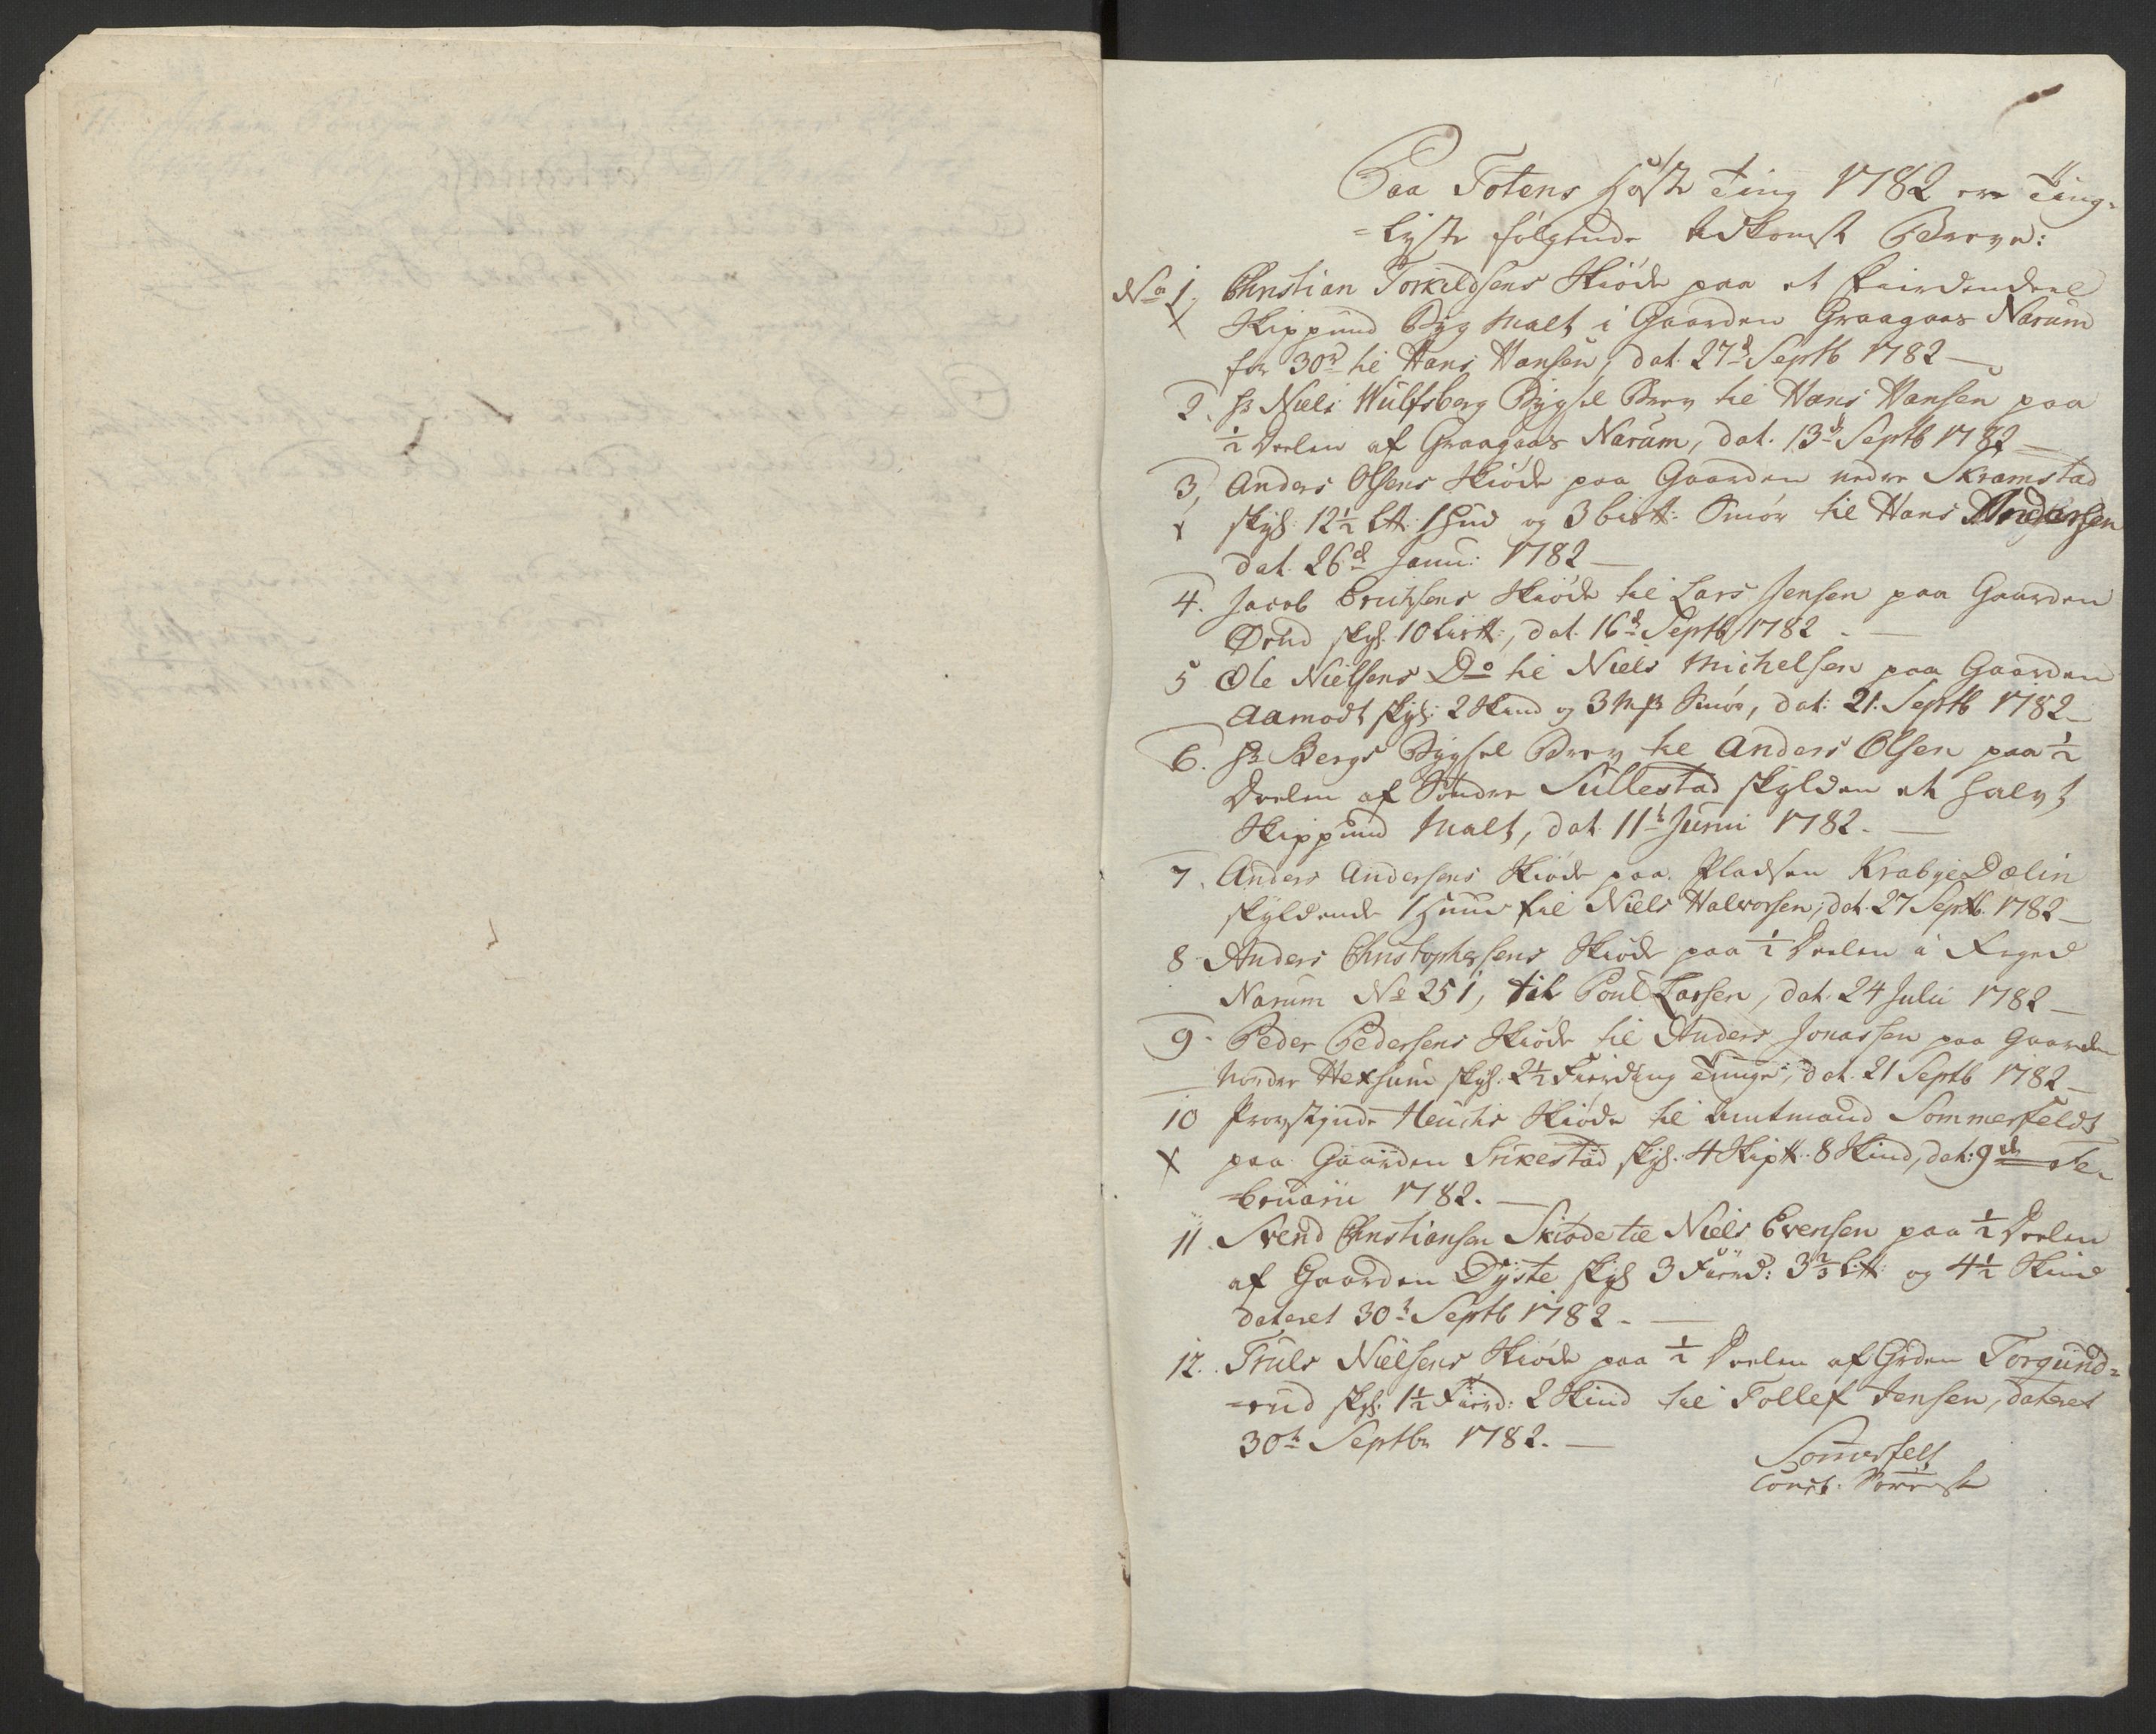 Paa Totens Høste Ting 1782 ere Ting-
=lyste følgende Adkomst Breve:
No 1. Christian Torkildsens Skiøde paa et Fierdendeel
Skippund Byg Malt i Gaarden Graagaas Narum
for 30rd til Hans Hansen, dat. 27d Septb 1782 —
2. Hr Niels Wulfsberg Bygsel Brev til Hans Hansen paa
½ Deelen af Graagaas Narum, dat. 13d Septb 1782 —
3, Anders Olsens Skiøde paa Gaarden nedre Skramstad
skyl: 12½ L℔: 1 Hud og 3 bis℔: Smør til Hans Andersen
dat. 26d Janu: 1782 —
4. Jacob Erichsens Skiøde til Lars Jensen paa Gaarden
Ørud skyl. 10 Lis℔:, dat. 16d Septb 1782. —
5 Ole Nielsens Do til Niels Michelsen paa Gaarden
Aamodt skyl: 2 Skind og 3 Mrk Smør, dat: 21. Septb 1782 —
6. Hr Bergs Bygsel Brev til Anders Olsen paa ½
Deelen af Søndre Sullestad skylden et halvt
Skippund Malt, dat. 11t Junii 1782. —
7. Anders Andersens Skiøde paa Pladsen KrabyeDælin
skyldende 1 Huud til Niels Halvorsen, dat. 27 Septb. 1782 —
8. Anders Christophersens Skiøde paa ½ Deelen i
Narum No 251, til Poul Larsen, dat. 24 Julii 1782 —
9. Peder Pedersens Skiøde til Anders Jonassen paa Gaarden
Nordre Hexsum skyl. 2½ Fierding Tunge, dat. 21 Septb 1782 —
10 Provstinde Heuchs Skiøde til Amtmand Sommerfeldt
paa Gaarden Stikestad skyl. 4 Skip℔: 8 Skind, dat: 9de Fe-
=bruarii 1782. —
11. Svend Christiansen Skiøde til Niels Evensen paa ½ Deelen
af Gaarden Dyste skyl 3 Fierd: 3⅔ L℔: og 4½ Skind
dateret 30t Septb 1782. —
12. Truls Nielsens Skiøde paa ½ Deelen af Grden Torgund=
=rud skyl. 1½ Fierd: 2 Skind til Tollef Jensen, dateret
30t Septbr 1782. —
Sommerfelt
Const.